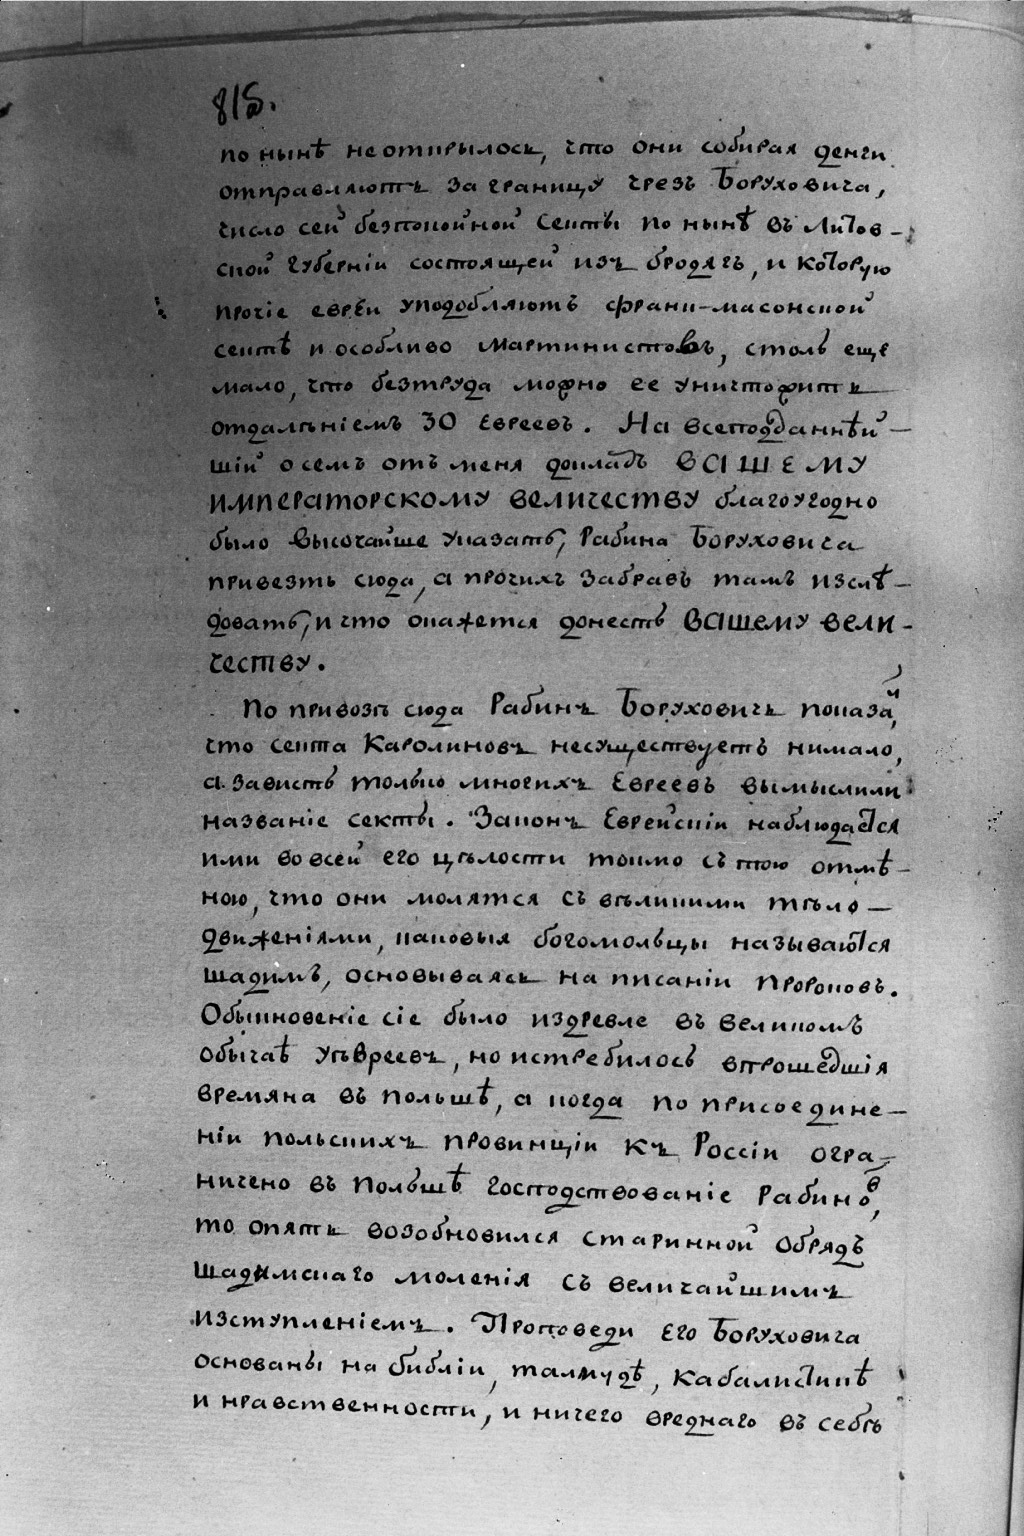 815.
по нынѣ неоткрылось, что они собирая денги
отправляютъ за границу чрезъ Боруховича,
число сей безпокойной Секты по нынѣ въ Литов-
ской губерніи состоящей изъ бродягъ, и которую
прочіе евреи уподобляютъ франк-масонской
сектѣ и особливо мартинистовъ, столь еще
мало, что безтруда можно ее уничтожить
отдалѣніемъ 30 Евреевъ. На всеподданнѣй-
шій о семъ отъ меня докладъ ВАШЕМУ
ИМПЕРАТОРСКОМУ ВЕЛИЧЕСТВУ благоугодно
было высочайше указать, Рабина Боруховича
привезть сюда, а прочихъ забравъ тамъ изслѣ-
довать, и что окажется донесть ВАШЕМУ ВЕЛИ-
ЧЕСТВУ.
По привозѣ сюда Рабинъ Боруховичь показалъ,
что секта Каролиновъ несуществуетъ нимало,
а зависть только многихъ Евреевъ вымыслили
названіе секты. Законъ Еврейскій наблюдается
ими во всей его цѣлости токмо съ тою отмѣ-
ною, что они молятся съ великими тѣло-
движеніями, каковыя богомольцы называются
шадимъ, основываясь на писаніи пророковъ.
Обыкновеніе сіе было издревле въ великомъ
обычаѣ уЕвреевъ, но истребилось впрошедшія
времяна въ польшѣ, а когда по присоедине-
ніи польскихъ провинціи къ Россіи огра-
ничено въ Польшѣ господствованіе Рабиновъ,
то опять возобновился старинной обрядъ
шадимскаго моленія съ величайшимъ
изступленіемъ. Проповеди его Боруховича
основаны на библіи, талмудѣ, кабалистикѣ
и нравственности, и ничего вреднаго въ себѣ